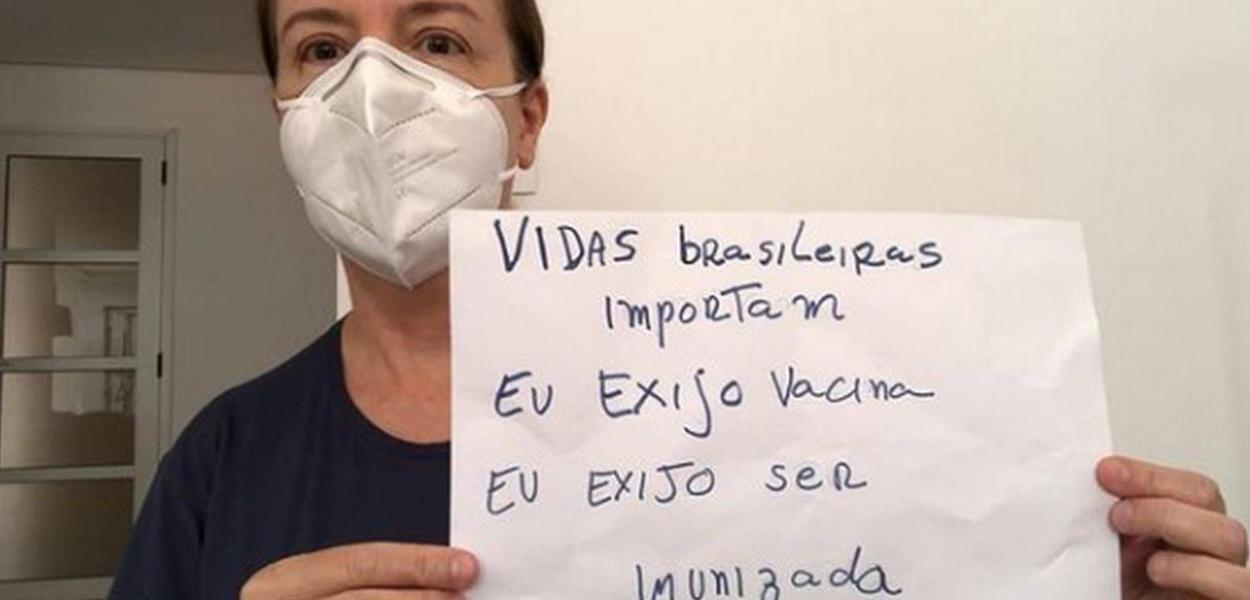 VIDAS brasileiras
importam
EU EXIJO Vacina
EU EXIJO ser
imunizada